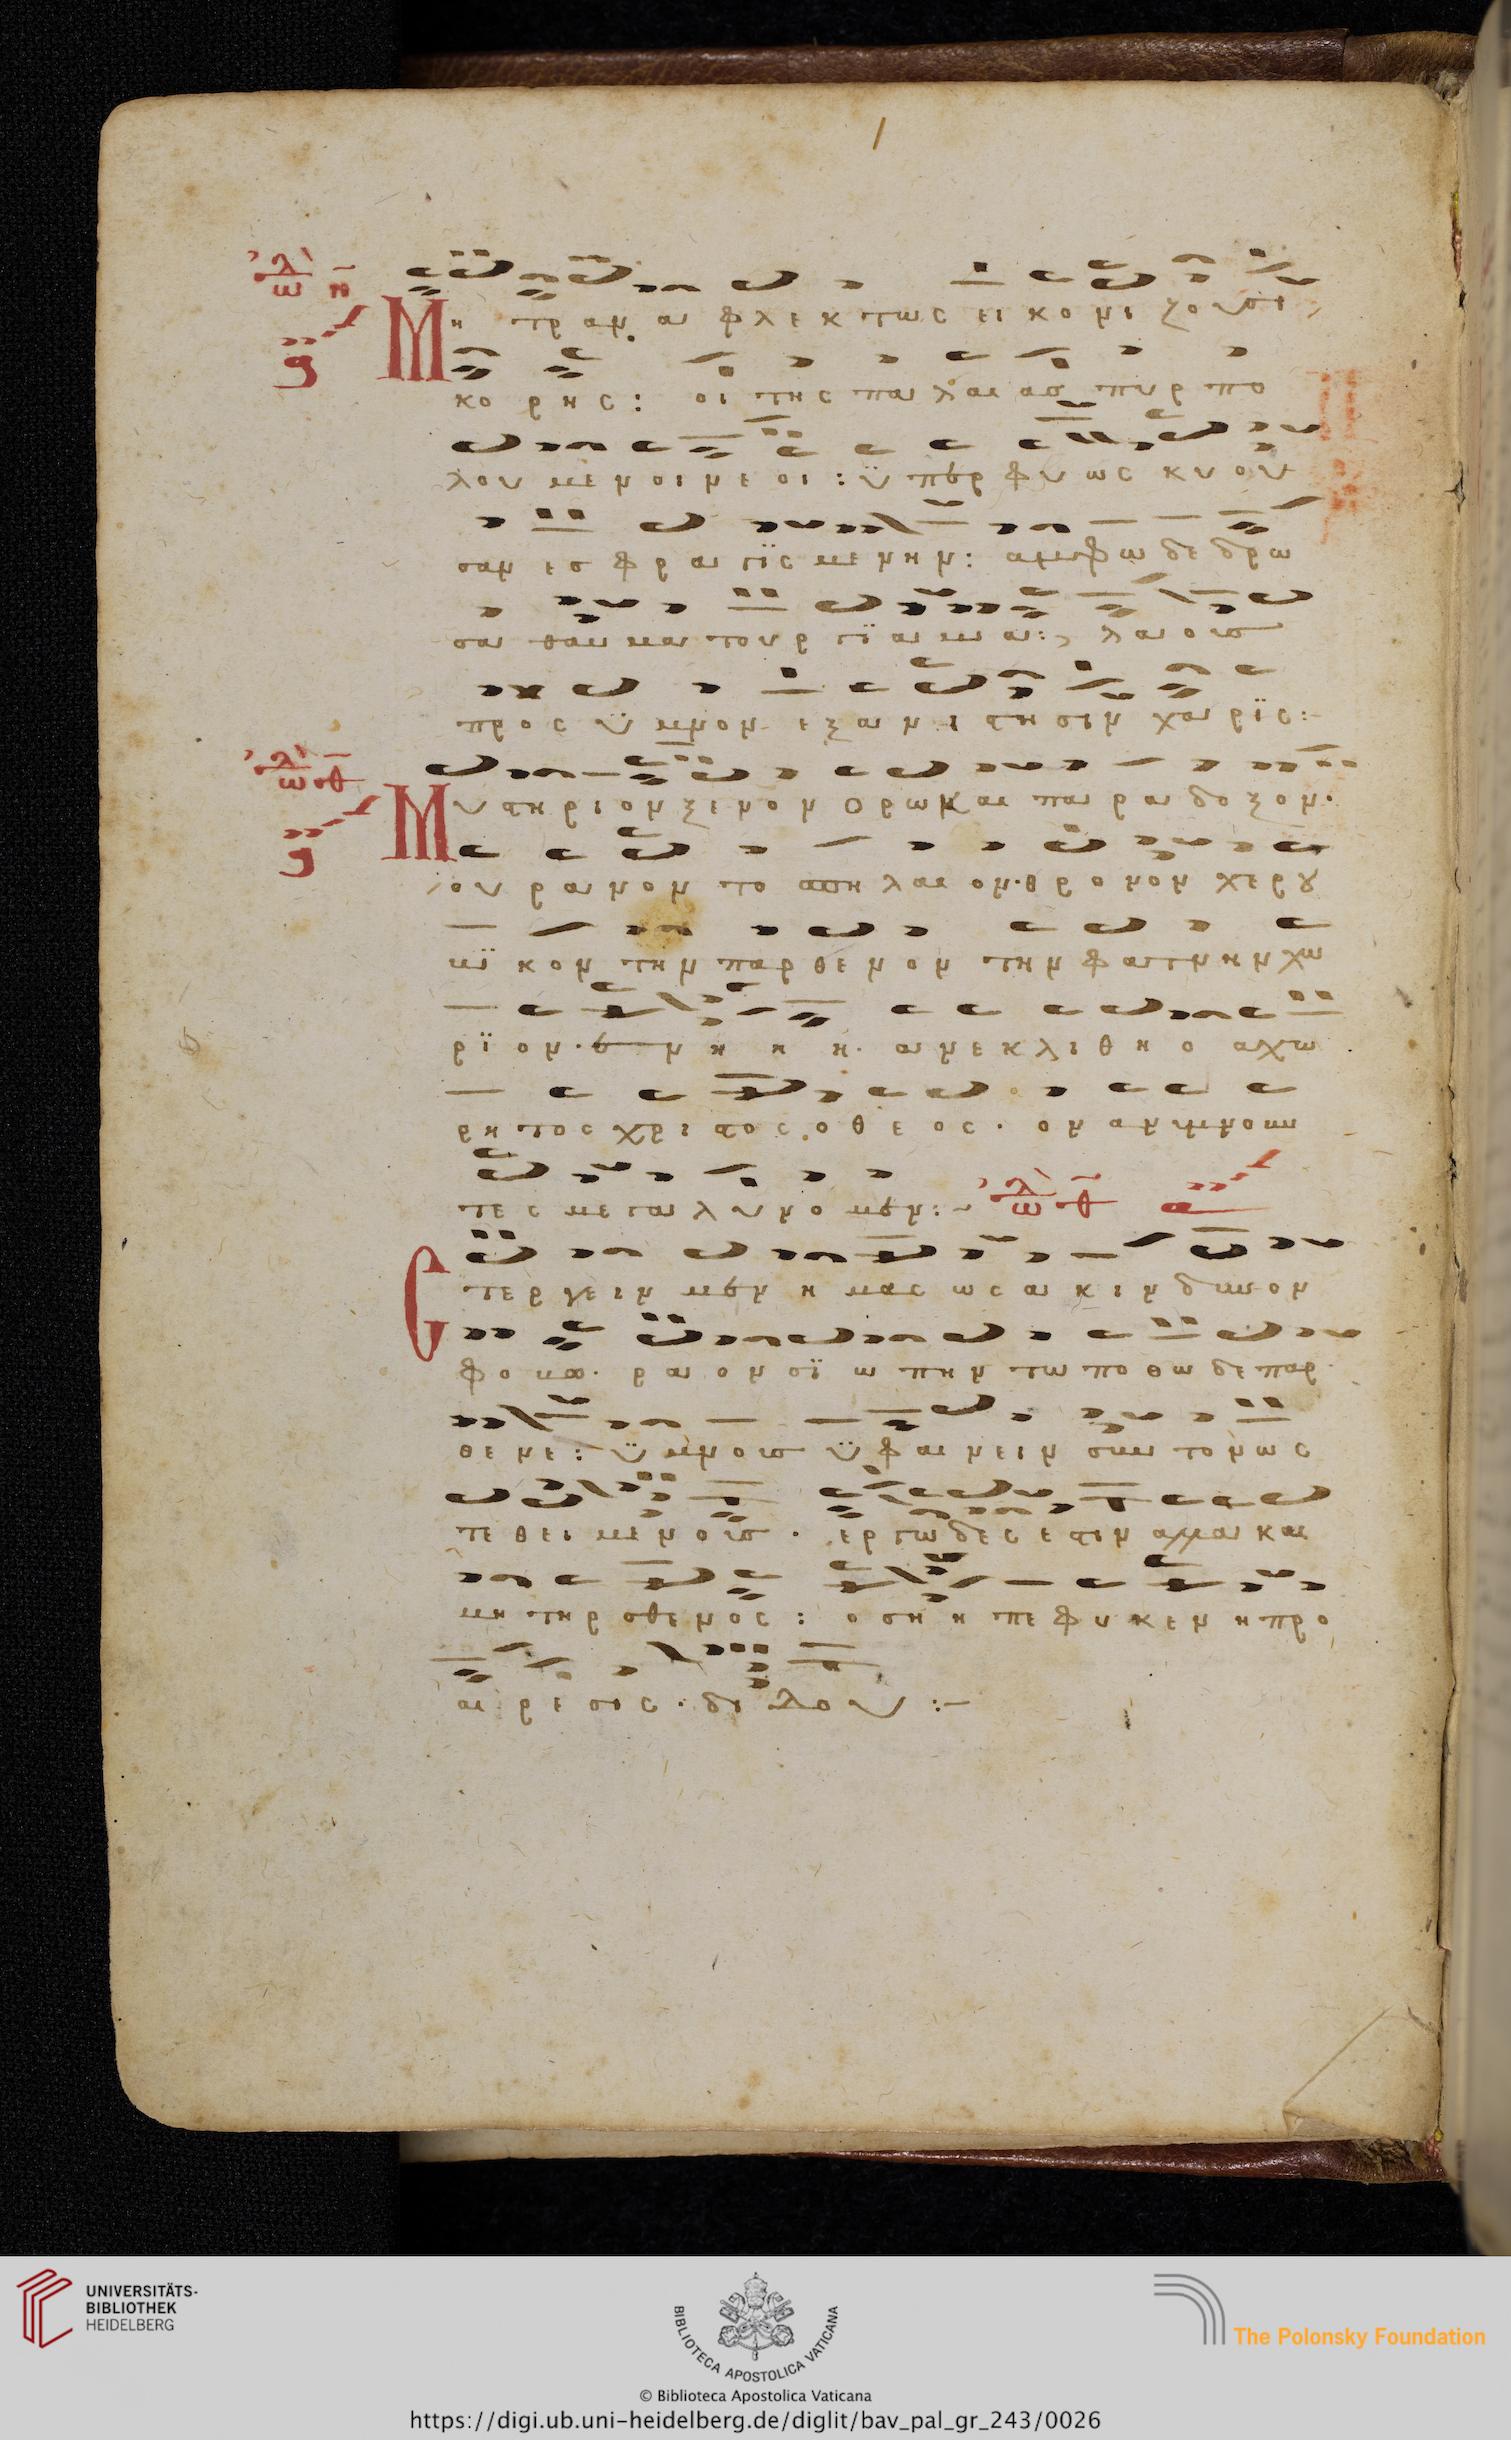 ωδ η
Μη τραν α φλεκτως ει κο νι ζουσι
κο ρης : οι της πα λαι ας πυρ πο
λου με νοι νε οι : ϋ περ φυ ως κυ ου
σαν εσ φρα γϊς με νην : αμφω δε δρω
σα θαυ μα τουρ γϊ α μι α : λα ους
προς ϋ μνον εξ α νι στη σιν χα ρϊς :
ωδ θ
Μυστηριον ξενον Ορω και πα ρα δο ξον ·
ου ρα νον το σπη λαι ον · θρο νον χερου
βϊ κον την παρ θε νον την φατνην χω
ρϊ ον · εν η η η · α νε κλι θη ο αχω
ρη τος χρι στος ο θε ος · ον ανυμνουν
τες με γα λυ νο μεν : ωδ θ
Στερ γειν μεν η μας ως α κιν δυνον
φο βω · ρα ον σϊ ω πην τω πο θω δε παρ
θε νε : ϋ μνους ϋ φαι νειν συν το νως
τε θει με νους · εργωδες ε στιν αλλα και
μη τηρ σθε νος : ο ση η πε φυ κεν η προ
αι ρε σις · δι δου :
UNIVERSITÄTS-
BIBLIOTHEK
HEIDELBERG
BIBLIOTECA APOSTOLICA VATICANA
The Polonsky Foundation
© Biblioteca Apostolica Vaticana
https://digi.ub.uni-heidelberg.de/diglit/bav_pal_gr_243/0026